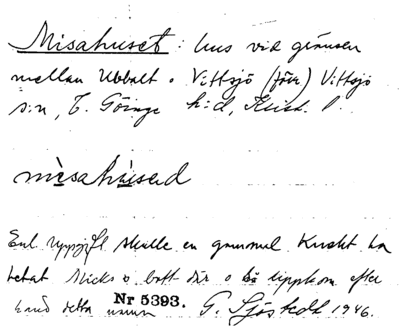 Misahuset: hus vid gränsen
mellan Ubbalt o Vittsjö (förr) Vittsjö
s:n, V. Göinge h:d, Krist. l.
misahúsəd
Enl. uppgift skulle en gammal Knekt ha
hetat Micks o bott där o så uppkom efter
hand detta namn Nr 5393. G. Sjöstedt 1946.